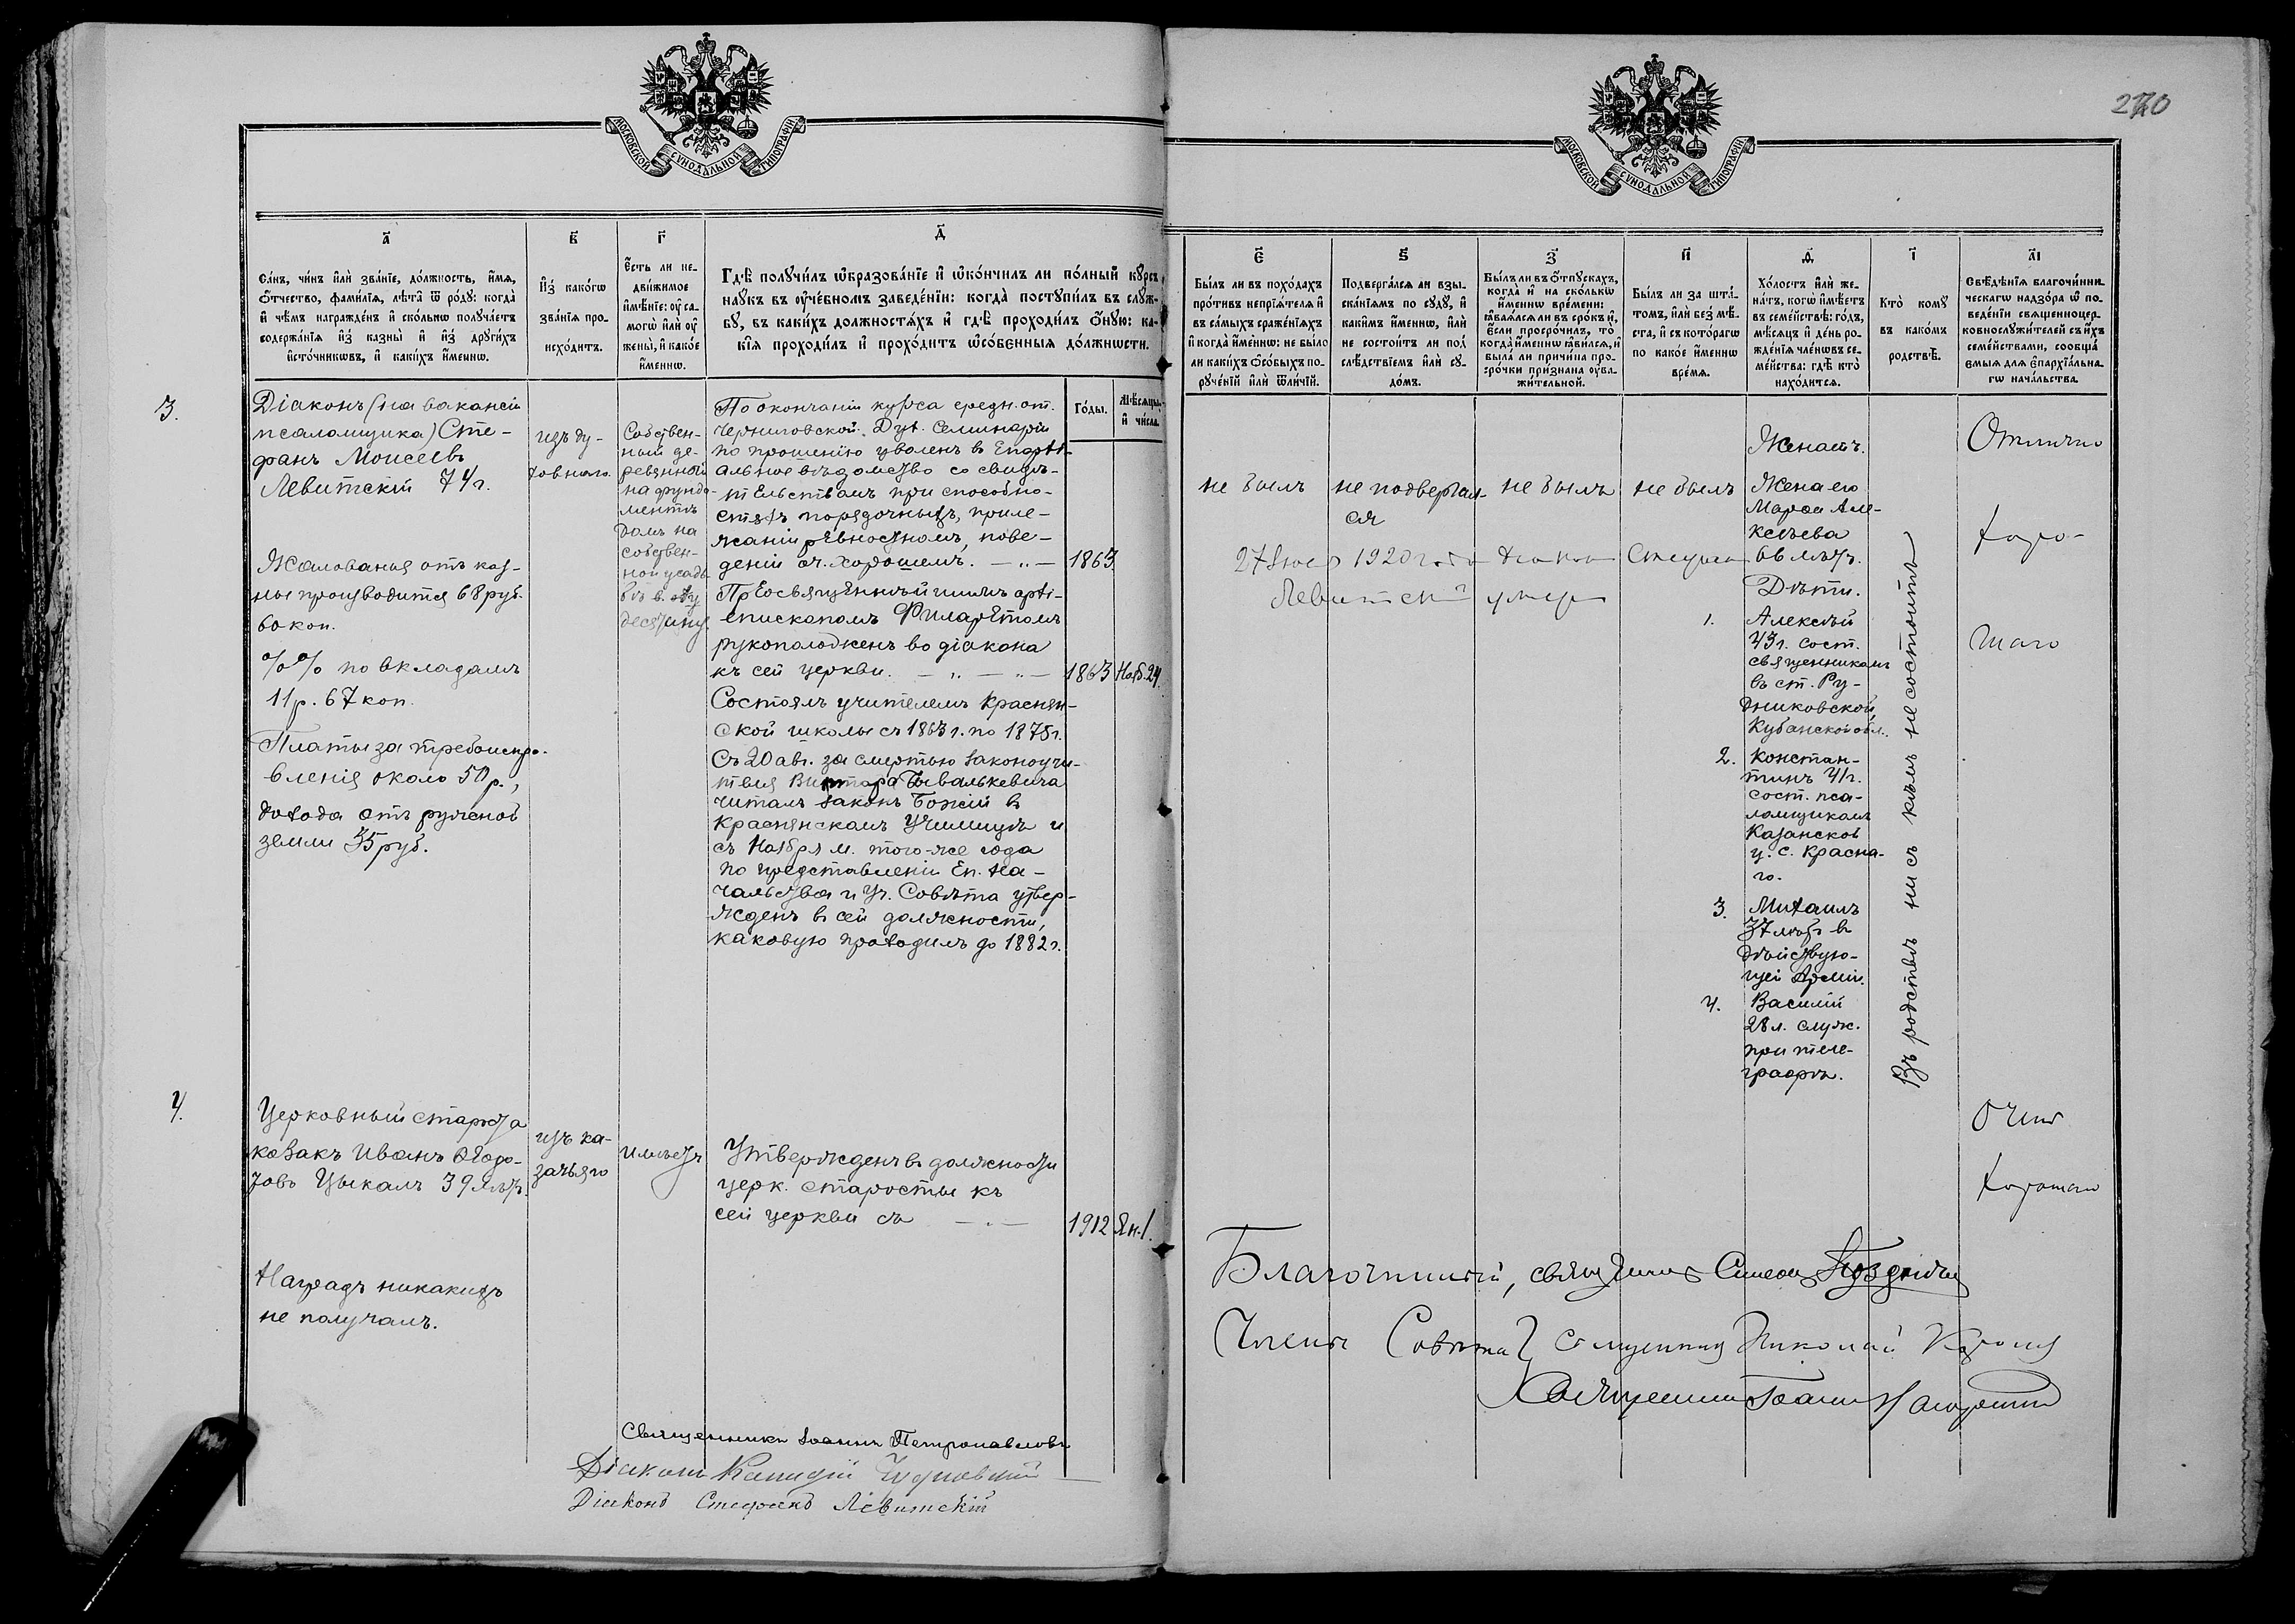 270
МОСКОВСКОЙ СУНОДАЛЬНОЙ ТИПОГРАФІИ
МОСКОВСКОЙ СУНОДАЛЬНОЙ ТИПОГРАФІИ
а҃
Са́нъ, чи́нъ и҆лѝ зва́нїе, до́лжность, и҆́мѧ,
ѻ҆́тчество, фами́лїѧ, лѣ́та ѿ ро́ду: когда̀
и҆ чѣ́мъ награжде́нъ и҆ ско́лькѡ получа́етъ
содержа́нїѧ и҆з̾ казны̀ и҆ и҆з̾ дрꙋги́хъ
и҆сто́чникѡвъ, и҆ каки́хъ и҆́меннѡ.
в҃
И҆з̾ како́гѡ
зва́нїѧ про-
исхо́дитъ.
г҃
Є҆́сть ли не-
дви́жимое
и҆мѣ́нїе: ᲂу҆ са-
могѡ̀ и҆лѝ ᲂу҆
жены̀, и҆ како́е
и҆́меннѡ.
д҃
Гдѣ̀ полꙋчи́лъ ѡ҆бразова́нїе и҆ ѡ҆ко́нчилъ ли по́лный кꙋ́рсъ
наꙋ́къ въ ᲂу҆че́бномъ заведе́нїи: когда̀ постꙋпи́лъ въ слꙋ́ж-
бꙋ, въ каки́хъ должностѧ́хъ и҆ гдѣ̀ проходи́лъ ѻ҆́нꙋю: ка-
кі̑ѧ проходи́лъ и҆ прохо́дитъ ѡ҆со́бенныѧ до́лжнѡсти.
Го́ды.
Мѣ́сѧцы
и҆ чи́сла.
є҃
Бы́лъ ли въ похо́дахъ
про́тивъ непрїѧ́телѧ и҆
въ са́мыхъ сраже́нїѧхъ
и҆ когда̀ и҆́меннѡ: не бы́ло
ли каки́хъ ѻ҆со́быхъ по-
рꙋче́нїй и҆лѝ ѿли́чїй.
ѕ҃
Подверга́лсѧ ли взы-
ска́нїѧмъ по сꙋдꙋ̀, и҆
каки̑мъ и҆́меннѡ, и҆лѝ
не состои́тъ ли под̾
слѣ́дствїемъ и҆лѝ сꙋ-
до́мъ.
з҃
Бы́лъ ли въ ѻ҆́тпꙋскахъ,
когда̀ и҆ на ско́лькѡ
и҆́меннѡ вре́мени:
ꙗ҆влѧ́лсѧ ли въ сро́къ и҆,
є҆́сли просро́чилъ, то
когда̀ и҆́меннѡ ꙗ҆ви́лсѧ, и҆
была̀ ли причи́на про-
сро́чки при́знана ᲂу҆ва-
жи́тельной.
и҃
Бы́лъ ли за шта́-
томъ, и҆лѝ без̾ мѣ́-
ста, и҆ съ кото́рагѡ
по како́е и҆́меннѡ
вре́мѧ.
ѳ҃
Хо́лостъ и҆лѝ же-
на́тъ, когѡ̀ и҆мѣ́етъ
въ семе́йствѣ: го́дъ,
мѣ́сѧцъ и҆ де́нь ро-
жде́нїѧ чле́нѡвъ се-
ме́йства: гдѣ̀ кто̀
нахо́дитсѧ.
і҃
Кто̀ комꙋ̀
въ како́мъ
родствѣ̀.
а҃і
Свѣ́дѣнїѧ благочи́нни-
ческагѡ надзо́ра ѡ҆ по-
веде́нїи свѧщенноцер-
ковнослꙋжи́телей съ и҆́хъ
семе́йствами, сообща́-
ємыѧ для є҆парха́льна-
гѡ нача́льства.
3.
Діаконъ (на вакансіи
псаломщика) Сте-
фанъ Моисеевъ
Левитскій 74 г.
Жалованья отъ каз-
ны производится 68 руб.
60 коп.
%% по вкладамъ
11 р. 67 коп.
Платы за требоиспра-
вленія около 50 р.,
дохода отъ ружной
земли 35 руб.
изъ ду-
ховнаго.
Собствен-
ный де-
ревянный
на фунда-
ментѣ
домъ на
собствен-
ной усадь-
бѣ в
десятину.
По окончаніи курса средн. от.
Черниговской Дух. Семинаріи
по прошенію уволенъ в Епархі-
альное вѣдомство со свидѣ-
тельствомъ при способно-
стяхъ порядочныхъ, приле-
жаніи ревностномъ, пове-
деніи оч. хорошемъ. — „ — 1863.
Преосвященнѣйшимъ архі-
епископомъ Филаретомъ
рукоположенъ во діакона
къ сей церкви. — „ — „ — 1863 Нояб. 24.
Состоялъ учителемъ Краснян-
ской школы съ 1863 г. по 1875 г.
Съ 20 авг. за смертью законоучи-
теля Виктора
читалъ Законъ Божій в
Краснянскомъ Училищѣ и
съ Ноября м. того-же года
по представленіи Еп. На-
чальства и Уч. Совѣта утвер-
жденъ в сей должности,
каковую проходилъ до 1882 г.
не былъ
не подвергал-
ся
не былъ
не былъ
27 1920 года діаконъ Стефанъ
Левитскій умеръ
Женатъ.
Жена его
Марѳа Але-
ксѣева
66 лѣтъ.
Дѣти.
1. Алексѣй
43 г. сост.
священникомъ
въ ст. Ру-
дниковской,
Кубанской обл.
2. Констан-
тинъ 41 г.
сост. пса-
ломщикомъ
Казанской
ц. с. Красна-
го.
3. Михаилъ
37 лѣтъ в
дѣйствую-
щей Арміи.
4. Василій
28 л. служ.
при теле-
графѣ.
Въ родствѣ ни съ кѣмъ не состоитъ
Отлично
хоро-
шаго
4.
Церковный староста
козакъ Иванъ Ѳедо-
товъ Цыкалъ 39 лѣтъ.
Наградъ никакихъ
не получалъ.
изъ ка-
зачьяго
Имѣетъ
Утвержденъ в должности
церк. старосты къ
сей церкви съ — „ — 1912 Ян. 1.
Очень
хорошаго
Священникъ Іоаннъ Петропавловъ
Діаконъ
Діаконъ Стефанъ Левитскій
Благочинный, священникъ Симеонъ
Члены Совѣта } священникъ Николай
Священникъ Іоаннъ